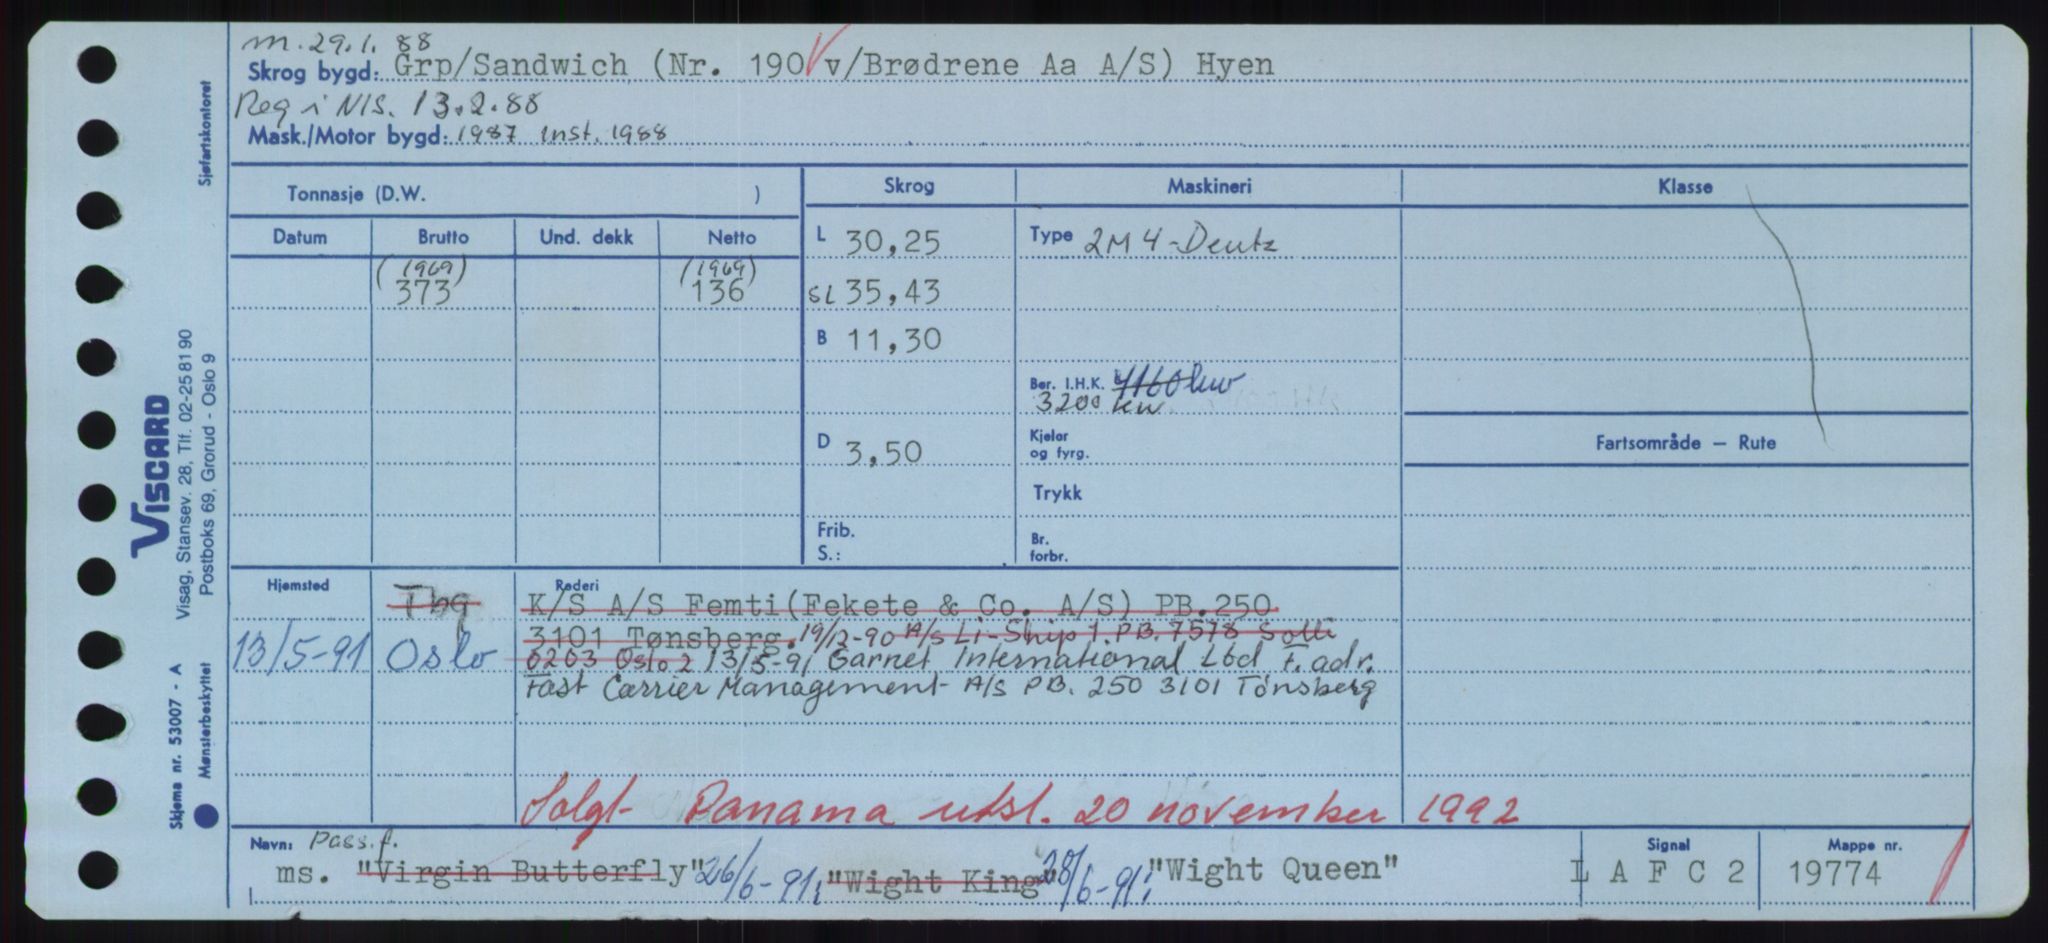 m. 29.1.88
Skrog bygd: Grp/Sandwich (Nr. 190 v/Brødrene Aa A/S) Hyen
Reg i NIS. 13.2.88
Mask./Motor bygd: 1987 inst. 1988
Tonnasje (D.W. )
Skrog
Maskineri
Klasse
Datum
Brutto
Und. dekk
Netto
(1969)
373
(1969)
136
L 30,25
SL 35,43
B 11,30
D 3,50
Frib.
S.:
Type 2M4-Deutz
Ber. I.H.K. 4160 kw
3200 kw
Kjelor
og fyrg.
Trykk
Br.
forbr.
Fartsområde — Rute
Hjemsted
Tbg
13/5-91 Oslo
Rederi
K/S A/S Femti (Fekete & Co. A/S) PB.250
3101 Tønsberg. 19/12-90 A/S Li-Ship 1. PB. 7578 Solli
0203 Oslo 2 13/5-91 Garnet International Ltd F. adr.
Fast Carrier Management A/S PB. 250 3101 Tønsberg
Solgt Panama utsl. 20 november 1992
Navn: Pass.f.
ms. "Virgin Butterfly" 26/6-91; "Wight King" 28/6-91; "Wight Queen"
Signal
L A F C 2
Mappe nr.
19774
Sjøfartskontoret
VISCARD
Visag, Stansev. 28, Tlf. 02-25 81 90
Postboks 69, Grorud - Oslo 9
Skjema nr. 53007 - A
Mønsterbeskyttet